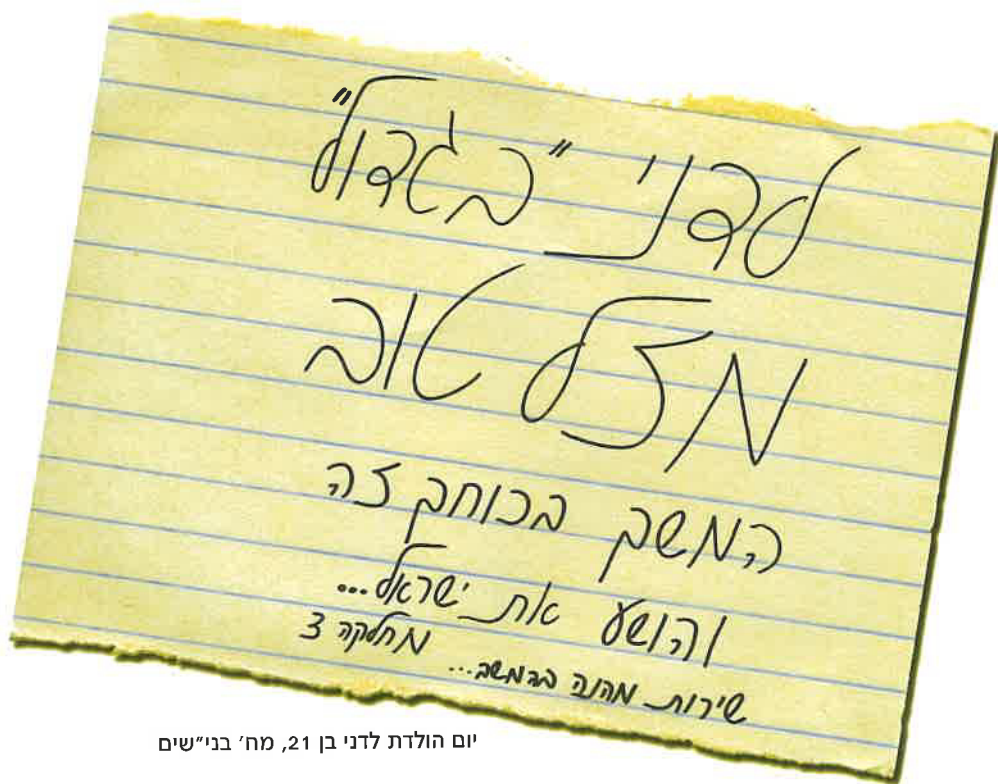 לדני "בגדול"
מזל טוב
המשך בכוחך זה
והושע את ישראל...
מחלקה 3
שירות מהנה בהמשך...
יום הולדת לדני בן 21, מח׳ בני״שים